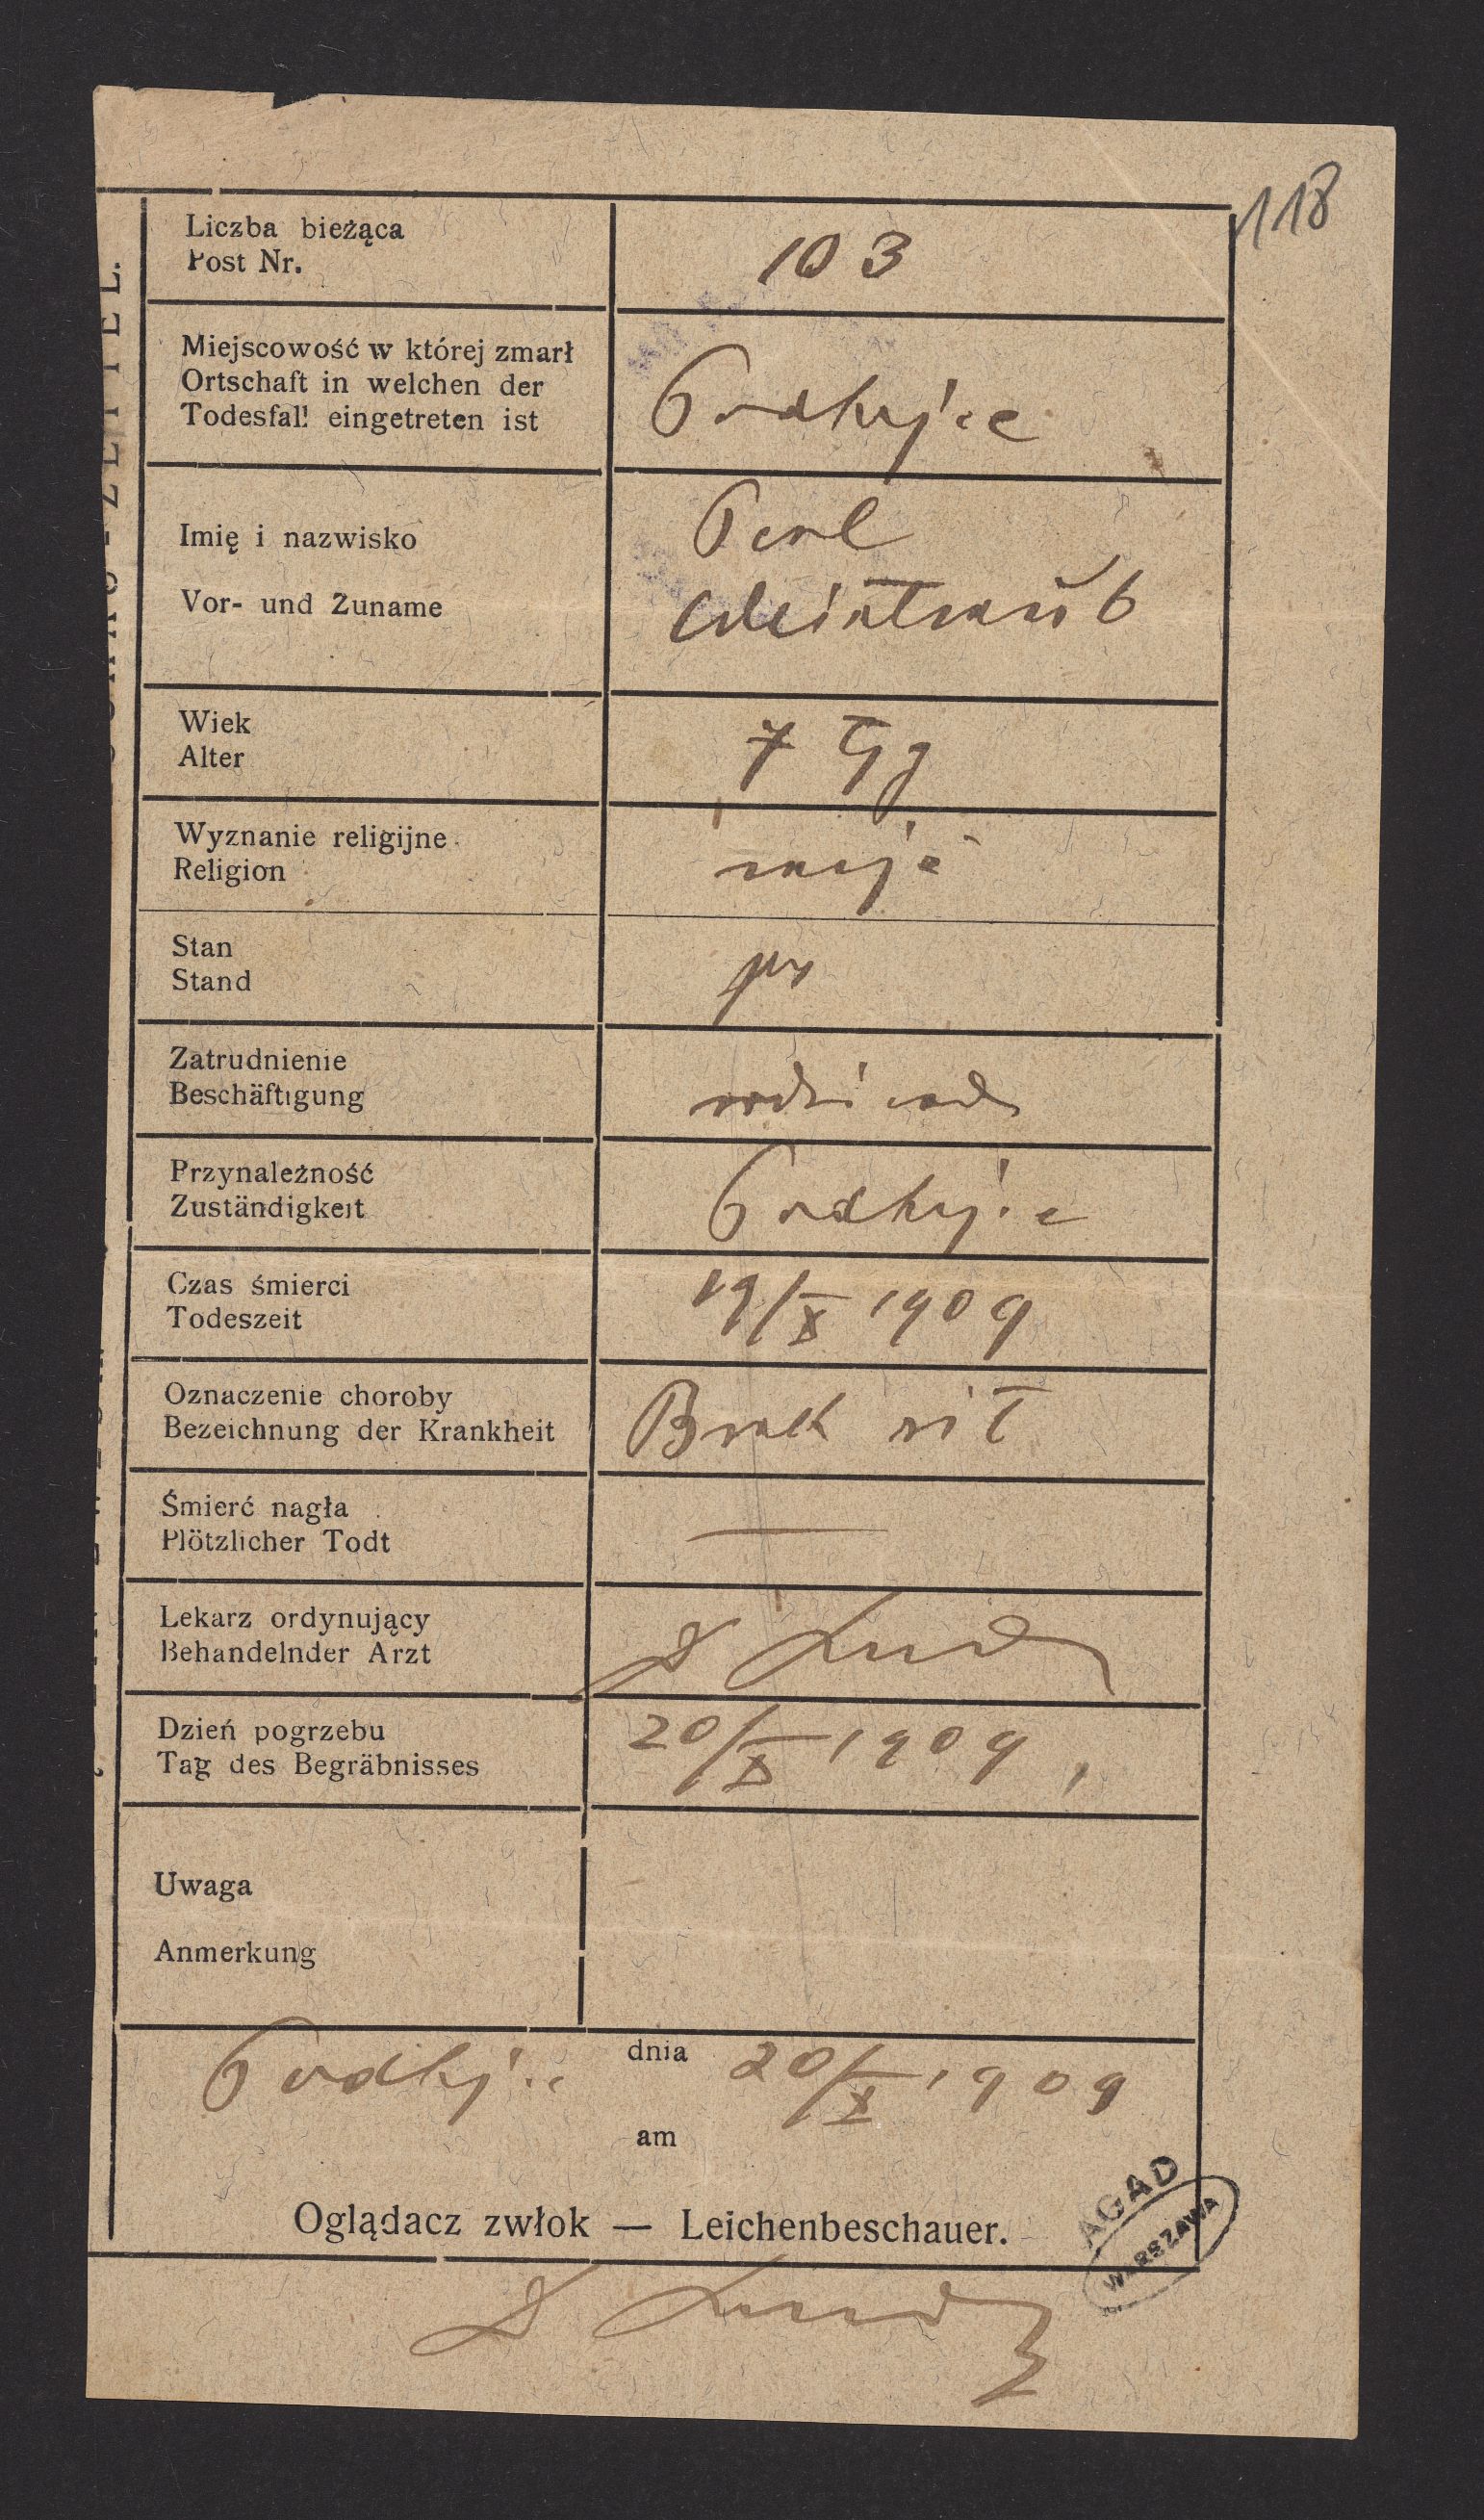 118
Liczba bieżąca
Post Nr.
103
Miejscowość w której zmarł
Ortschaft in welchen der
Todesfall eingetreten ist
Podhajce
Imię i nazwisko
Vor- und Zuname
Perl
Weintraub
Wiek
Alter
7 Tyg
Wyznanie religijne
Religion
mojż
Stan
Stand
Zatrudnienie
Beschäftigung
Przynależność
Zuständigkeit
Podhajce
Czas śmierci
Todeszeit
19/X 1909
Oznaczenie choroby
Bezeichnung der Krankheit
Brak sił
Śmierć nagła
Plötzlicher Todt
—
Lekarz ordynujący
Behandelnder Arzt
Dzień pogrzebu
Tag des Begräbnisses
20/X 1909
Uwaga
Anmerkung
Podhajce dnia 20/X 1909
am
Oglądacz zwłok — Leichenbeschauer.
AGAD
WARSZAWA